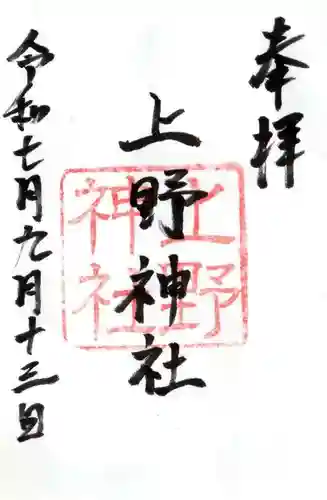 奉拝
上野神社
上野
神社
令和七年九月十三日